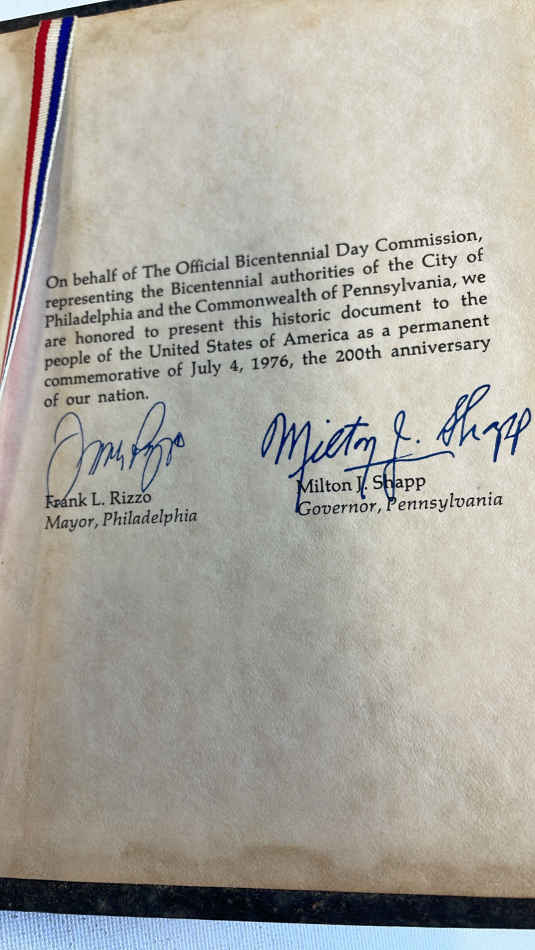 On behalf of The Official Bicentennial Day Commission,
representing the Bicentennial authorities of the City of
Philadelphia and the Commonwealth of Pennsylvania, we
are honored to present this historic document to the
people of the United States of America as a permanent
commemorative of July 4, 1976, the 200th anniversary
of our nation.
Frank Rizzo
Milton J. Shapp
Frank L. Rizzo
Mayor, Philadelphia
Milton J. Shapp
Governor, Pennsylvania